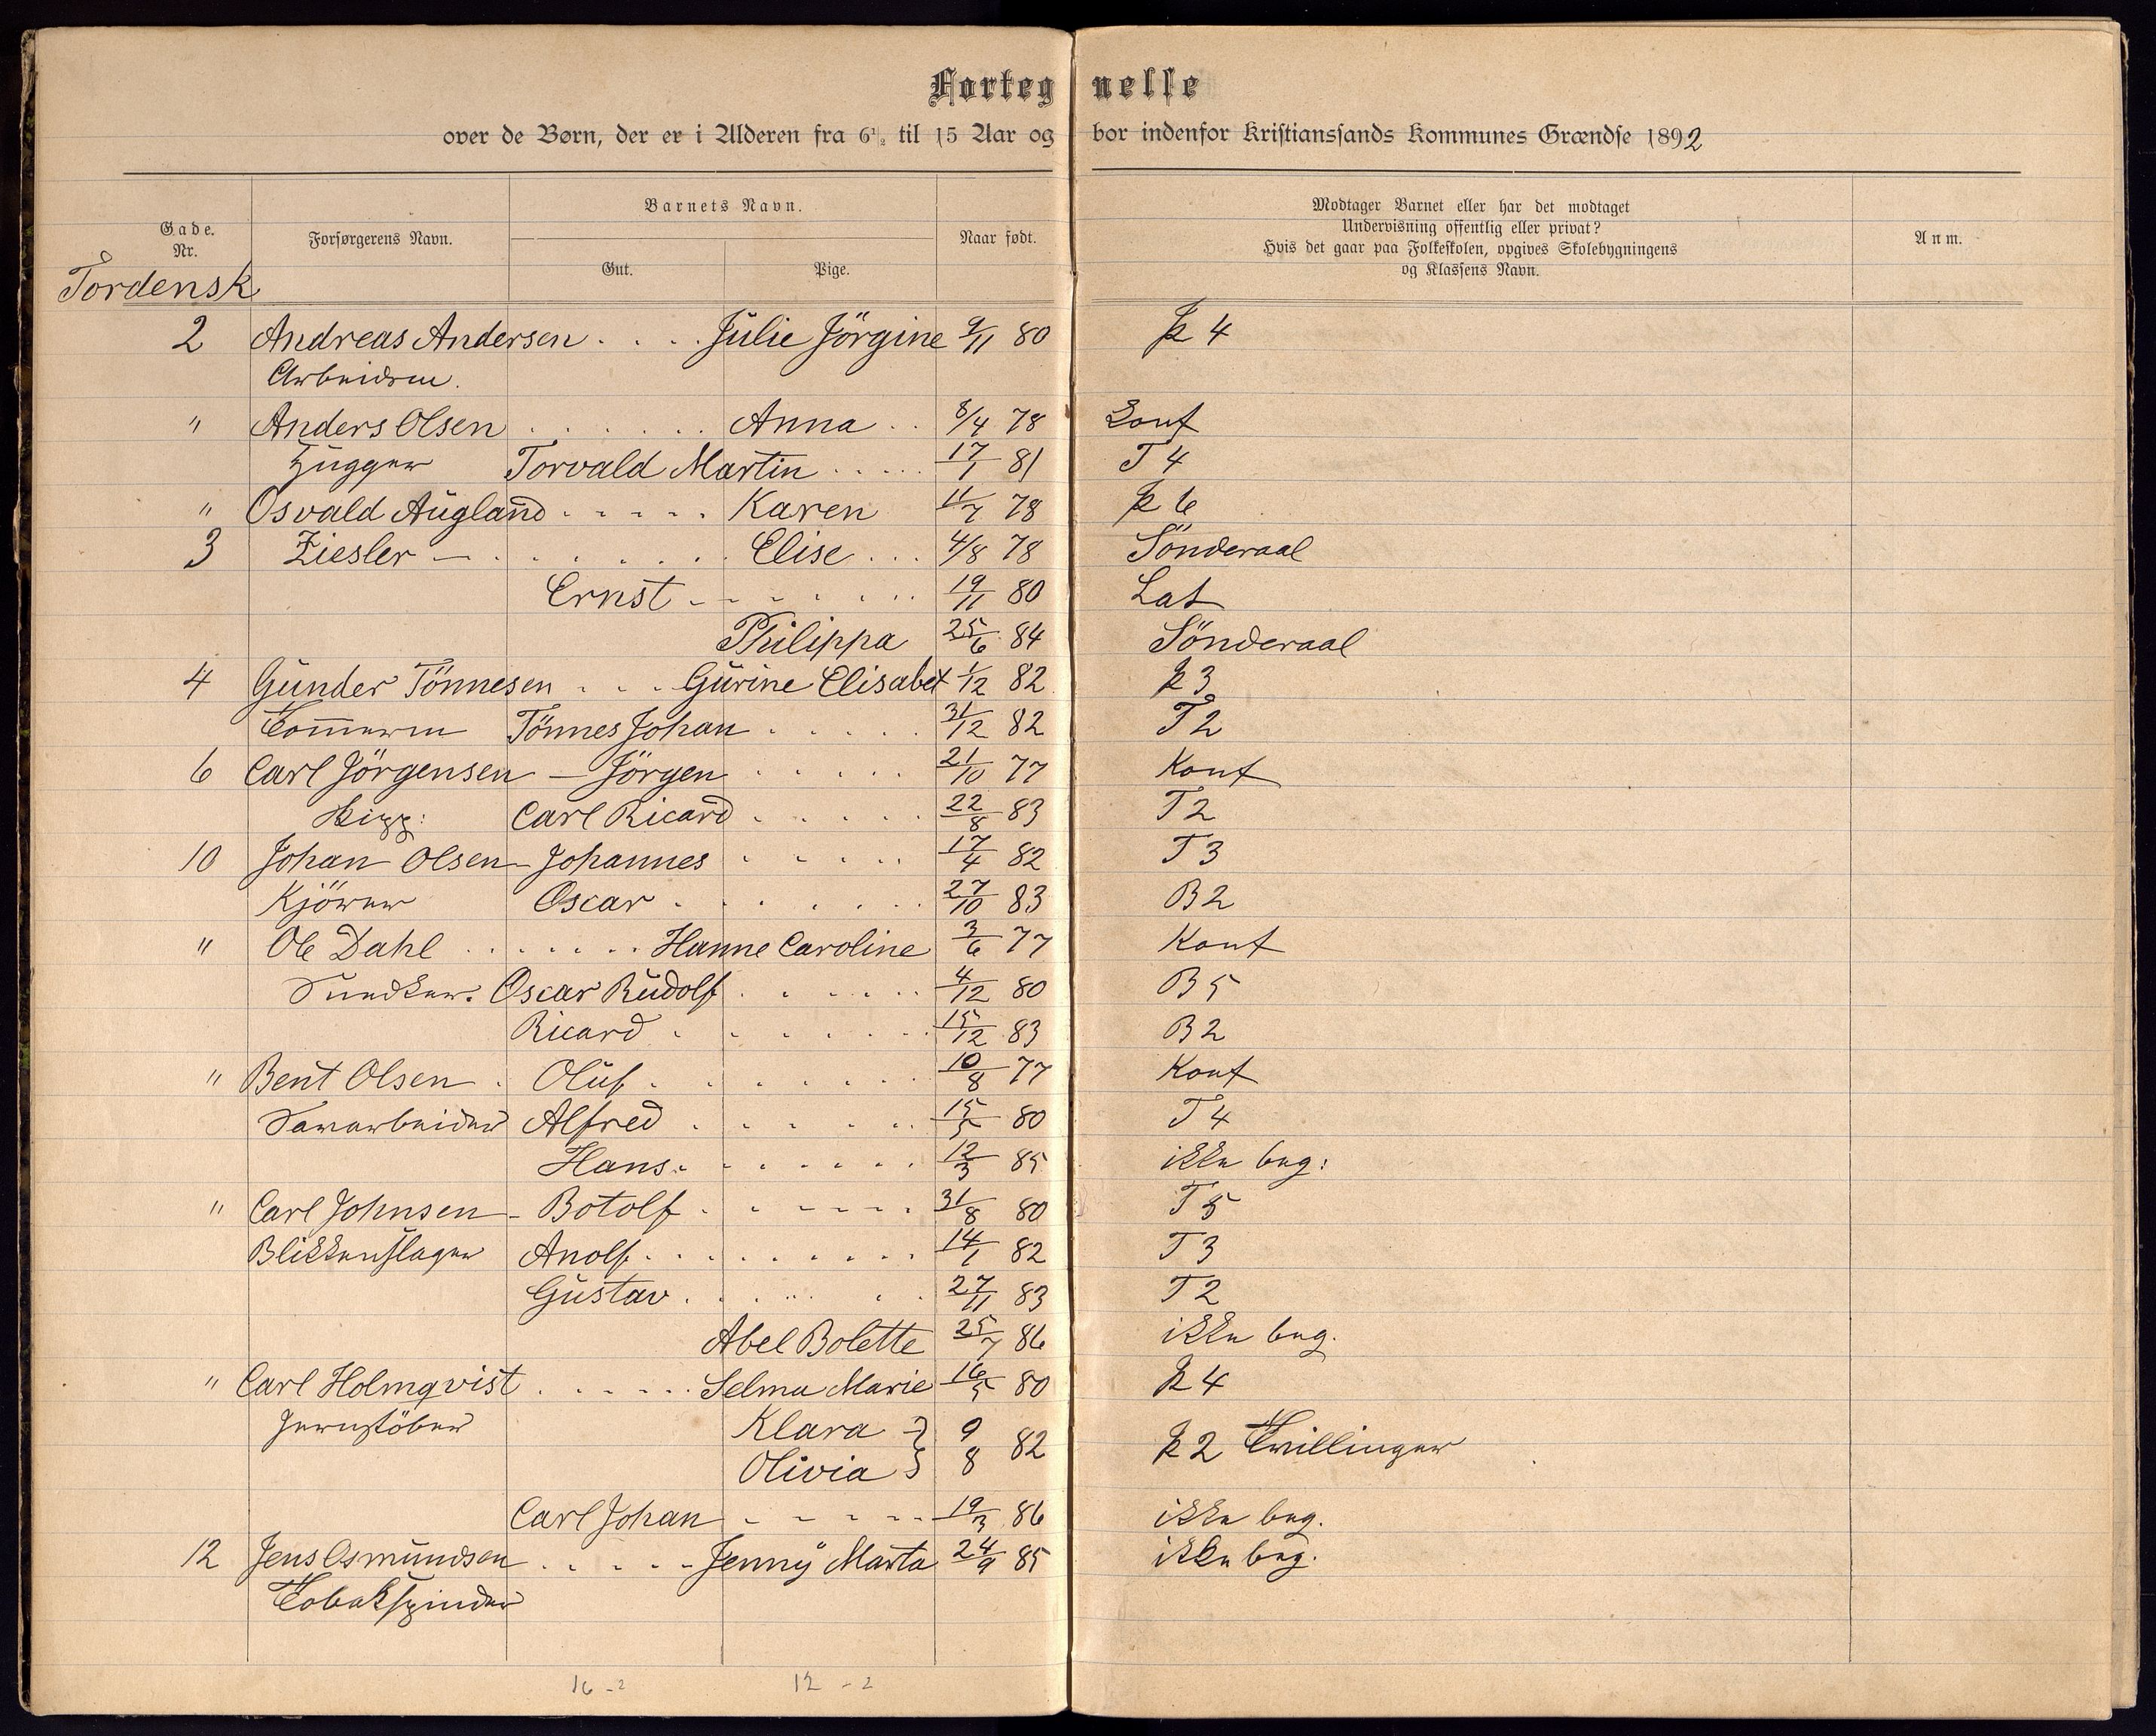 Forteg nelse
over de Børn, der er i Alderen fra 6½ til 15 Aar og bor indenfor Kristianssands Kommunes Grændse 1892
Gade. Nr.
Forsørgerens Navn.
Barnets Navn.
Gut.
Pige.
Naar født.
Modtager Barnet eller har det modtaget
Undervisning offentlig eller privat?
Hvis det gaar paa Folkeskolen, opgives Skolebygningens
og Klassens Navn.
Anm.
Tordensk
2 Andreas Andersen . . . . Julie Jörgine 9/11 80 P 4
Arbeidsm.
" Anders Olsen . . . . . . . Anna . . 8/4 78 Konf
Hugger Torvald Martin . . . . . 17/1 81 T 4
" Osvald Augland . . . . . Karen 11/7 78 P 6
3 Ziesler — . . . . . . . Elise . . . 4/8 78 Sönderaal
Ernst . . . . . . . 19/11 80 Lat
Philippa 25/6 84 Sönderaal
4 Gunder Tönnesen . . . Gurine Elisabet 1/12 82 P 3
Tömmerm Tönnes Johan . . . . . 31/12 82 T 2
6 Carl Jörgensen — Jörgen . . . . . 21/10 77 Konf
Rigg: Carl Ricard . . . . . 22/8 83 T 2
10 Johan Olsen - Johannes . . . . . 17/4 82 T 3
Kjörer Oscar . . . . . . . 27/10 83 B 2
" Ole Dahl . . . . . . . Hanne Caroline 3/6 77 Konf
Snedker. Oscar Rudolf . . . . . . 4/12 80 B 5
Ricard . . . . . . . 15/12 83 B 2
" Bent Olsen . Oluf . . . . . . . 10/8 77 Konf
Alfred . . . . . . . 15/5 80 T 4
Hans . . . . . . . 12/3 85 ikke beg:
" Carl Johnsen - Botolf . . . . . . 31/8 80 T 5
Blikkenslager Anolf . . . . . . . . 14/1 82 T 3
Gustav . . . . . . 27/11 83 T 2
Abel Bolette 25/7 86 ikke beg.
" Carl Holmqvist . . . . . . Selma Marie 16/5 80 P 4
Jernstöber Klara } 9/8 82 P 2 Tvillinger
Olivia }
Carl Johan . . . . . 19/3 86 ikke beg.
12 Jens Osmundsen . . . . . Jenny Marta 24/9 85 ikke beg.
Tobakspinder
16 - 2 12 - 2